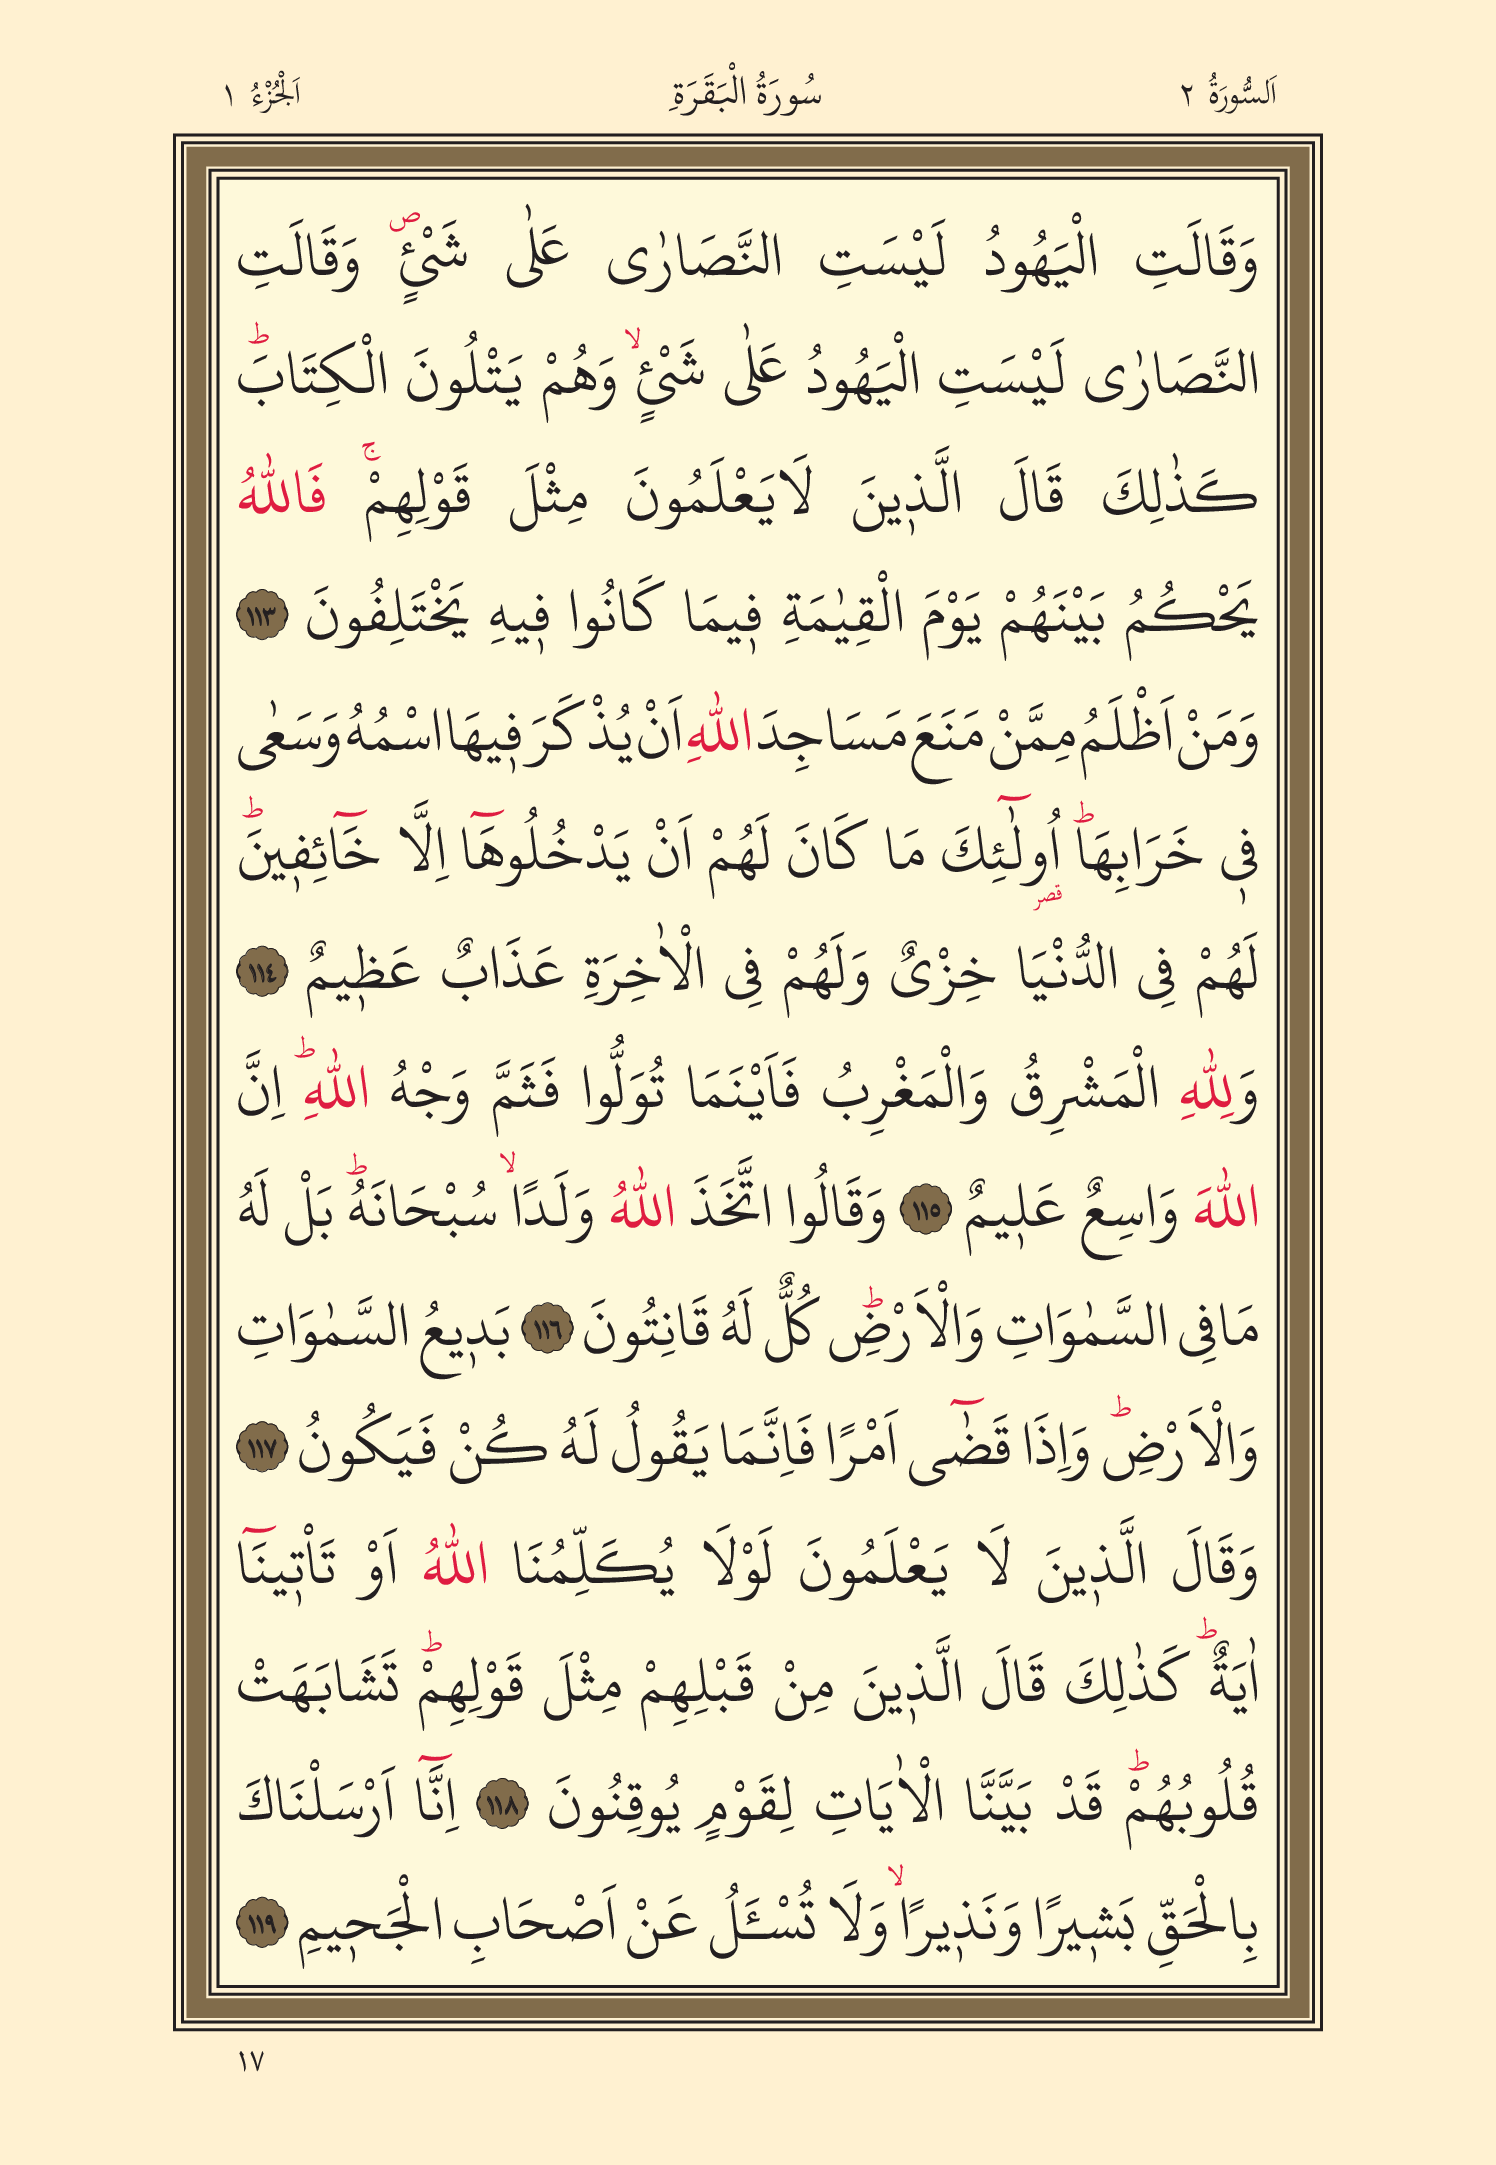 اَلسُّورَةُ ٢ سُورَةُ الْبَقَرَةِ اَلْجُزْءُ ١
وَقَالَتِ الْيَهُودُ لَيْسَتِ النَّصَارٰى عَلٰى شَيْئٍۖ وَقَالَتِ
النَّصَارٰى لَيْسَتِ الْيَهُودُ عَلٰى شَيْئٍۙ وَهُمْ يَتْلُونَ الْكِتَابَؕ
كَذٰلِكَ قَالَ الَّذ۪ينَ لَايَعْلَمُونَ مِثْلَ قَوْلِهِمْۚ فَاللّٰهُ
يَحْكُمُ بَيْنَهُمْ يَوْمَ الْقِيٰمَةِ ف۪يمَا كَانُوا ف۪يهِ يَخْتَلِفُونَ ١١٣
وَمَنْ اَظْلَمُ مِمَّنْ مَنَعَ مَسَاجِدَ اللّٰهِ اَنْ يُذْكَرَ ف۪يهَا اسْمُهُ وَسَعٰى
ف۪ى خَرَابِهَاؕ اُولٰٓئِكَ مَا كَانَ لَهُمْ اَنْ يَدْخُلُوهَٓا اِلَّا خَٓائِف۪ينَؕ
قصر
لَهُمْ فِى الدُّنْيَا خِزْىٌ وَلَهُمْ فِى الْاٰخِرَةِ عَذَابٌ عَظ۪يمٌ ١١٤
وَلِلّٰهِ الْمَشْرِقُ وَالْمَغْرِبُ فَاَيْنَمَا تُوَلُّوا فَثَمَّ وَجْهُ اللّٰهِؕ اِنَّ
اللّٰهَ وَاسِعٌ عَل۪يمٌ ١١٥ وَقَالُوا اتَّخَذَ اللّٰهُ وَلَدًاۙ سُبْحَانَهُؕ بَلْ لَهُ
مَافِى السَّمٰوَاتِ وَالْاَرْضِؕ كُلٌّ لَهُ قَانِتُونَ ١١٦ بَد۪يعُ السَّمٰوَاتِ
وَالْاَرْضِؕ وَاِذَا قَضٰٓى اَمْرًا فَاِنَّمَا يَقُولُ لَهُ كُنْ فَيَكُونُ ١١٧
وَقَالَ الَّذ۪ينَ لَا يَعْلَمُونَ لَوْلَا يُكَلِّمُنَا اللّٰهُ اَوْ تَاْت۪ينَٓا
اٰيَةٌؕ كَذٰلِكَ قَالَ الَّذ۪ينَ مِنْ قَبْلِهِمْ مِثْلَ قَوْلِهِمْؕ تَشَابَهَتْ
قُلُوبُهُمْؕ قَدْ بَيَّنَّا الْاٰيَاتِ لِقَوْمٍ يُوقِنُونَ ١١٨ اِنَّٓا اَرْسَلْنَاكَ
بِالْحَقِّ بَش۪يرًا وَنَذ۪يرًاۙ وَلَا تُسْـَٔلُ عَنْ اَصْحَابِ الْجَح۪يمِ ١١٩
١٧